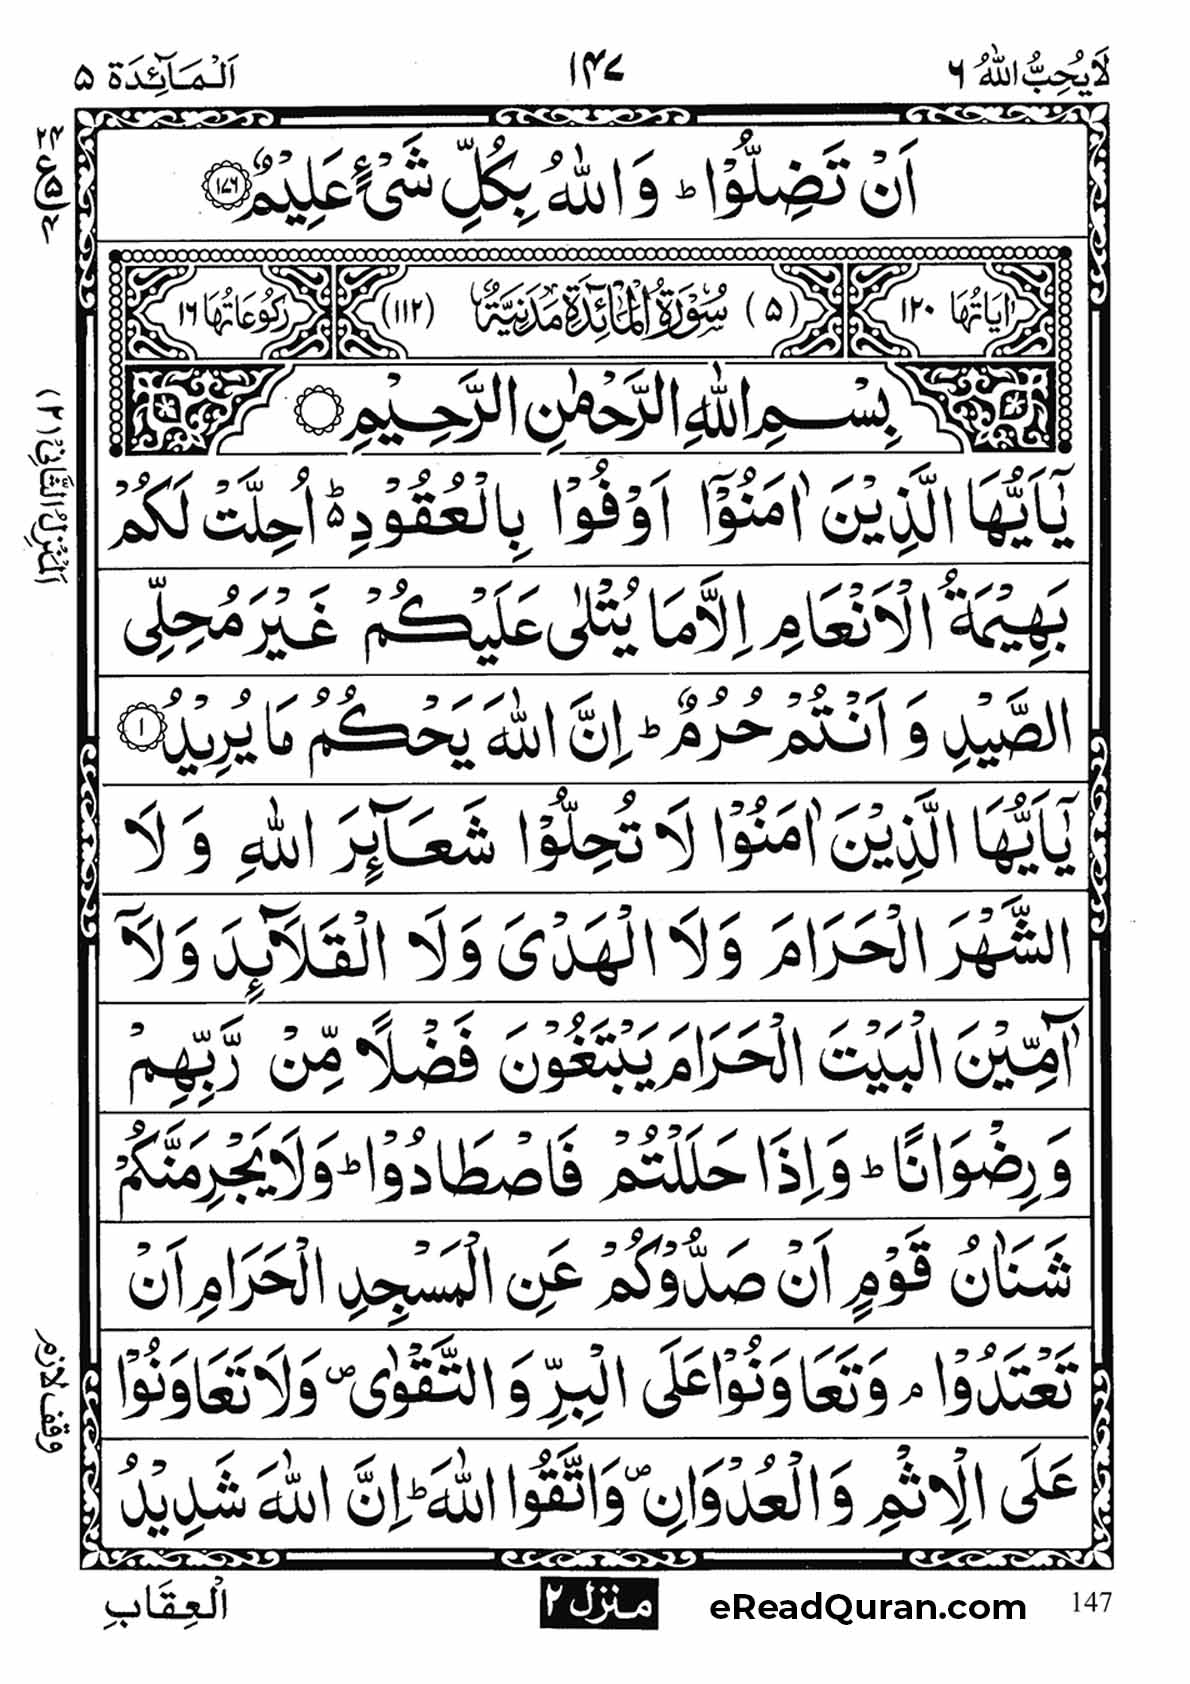 لَا يُحِبُّ اللّٰهُ ٦
١٤٧
اَلْمَآئِدَة ٥
اَنْ تَضِلُّوْا ؕ وَ اللّٰهُ بِكُلِّ شَیْءٍ عَلِیْمٌ ﴿۱۷۶﴾
اٰیَاتُهَا ١٢٠
﴿٥﴾ سُوْرَةُ الْمَآئِدَةِ مَدَنِیَّةٌ ﴿١١٢﴾
رُكُوْعَاتُهَا ١٦
بِسْمِ اللّٰهِ الرَّحْمٰنِ الرَّحِیْمِ
یٰۤاَیُّهَا الَّذِیْنَ اٰمَنُوْۤا اَوْفُوْا بِالْعُقُوْدِ ؕ۬ اُحِلَّتْ لَكُمْ
بَهِیْمَةُ الْاَنْعَامِ اِلَّا مَا یُتْلٰی عَلَیْكُمْ غَیْرَ مُحِلِّی
الصَّیْدِ وَ اَنْتُمْ حُرُمٌ ؕ اِنَّ اللّٰهَ یَحْكُمُ مَا یُرِیْدُ ﴿۱﴾
یٰۤاَیُّهَا الَّذِیْنَ اٰمَنُوْا لَا تُحِلُّوْا شَعَآئِرَ اللّٰهِ وَ لَا
الشَّهْرَ الْحَرَامَ وَ لَا الْهَدْیَ وَ لَا الْقَلَآئِدَ وَ لَاۤ
آٰمِّیْنَ الْبَیْتَ الْحَرَامَ یَبْتَغُوْنَ فَضْلًا مِّنْ رَّبِّهِمْ
وَ رِضْوَانًا ؕ وَ اِذَا حَلَلْتُمْ فَاصْطَادُوْا ؕ وَ لَا یَجْرِمَنَّكُمْ
شَنَاٰنُ قَوْمٍ اَنْ صَدُّوْكُمْ عَنِ الْمَسْجِدِ الْحَرَامِ اَنْ
تَعْتَدُوْا ۘ وَ تَعَاوَنُوْا عَلَی الْبِرِّ وَ التَّقْوٰی ۪ وَ لَا تَعَاوَنُوْا
عَلَی الْاِثْمِ وَ الْعُدْوَانِ ۪ وَ اتَّقُوا اللّٰهَ ؕ اِنَّ اللّٰهَ شَدِیْدُ
الْعِقَابِ
منزل ٢
eReadQuran.com
147
اَلْمَنْزِلُ الثَّانِیْ (٢)
وقف لازم